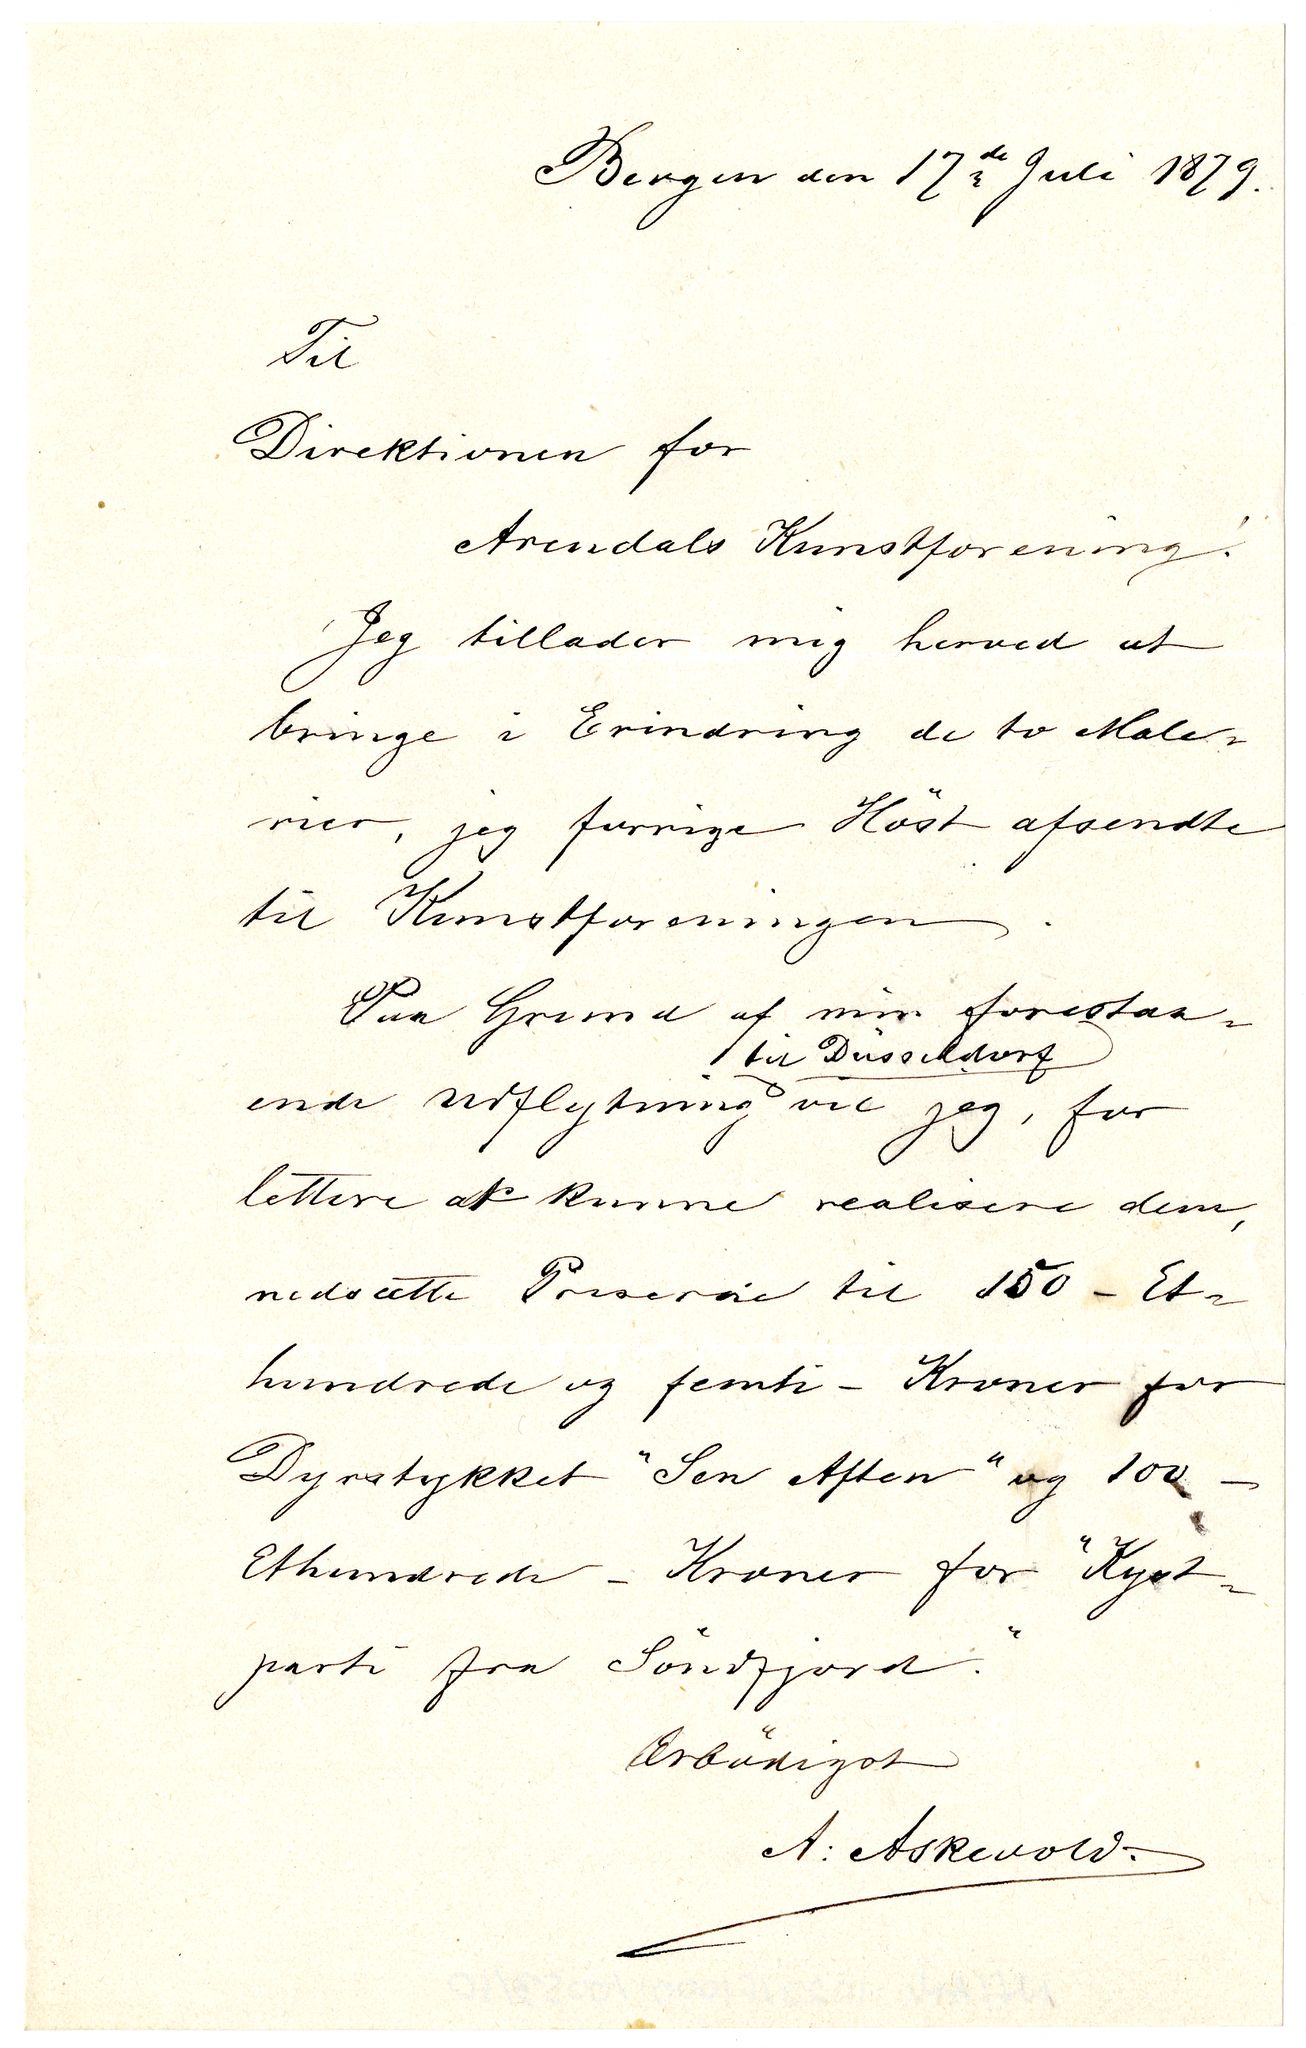 Bergen den 17de Juli 1879.
Til
Direktionen for
Arendals Kunstforening!
Jeg tillader mig herved at
bringe i Erindring de to Male-
rier, jeg forrige Höst afsendte
til Kunstforeningen.
Paa Grund af min forestaa-
til Düsseldorf
ende udflytning vil jeg, for
lettere at kunne realisere dem,
nedsætte Priserne til 150 - Et-
hundrede og femti - Kroner for
Dyrstykket "Sen Aften" og 100 -
Ethundrede - Kroner for "Kyst-
parti fra Söndfjord."
Ærbödigst
A. Askevold.